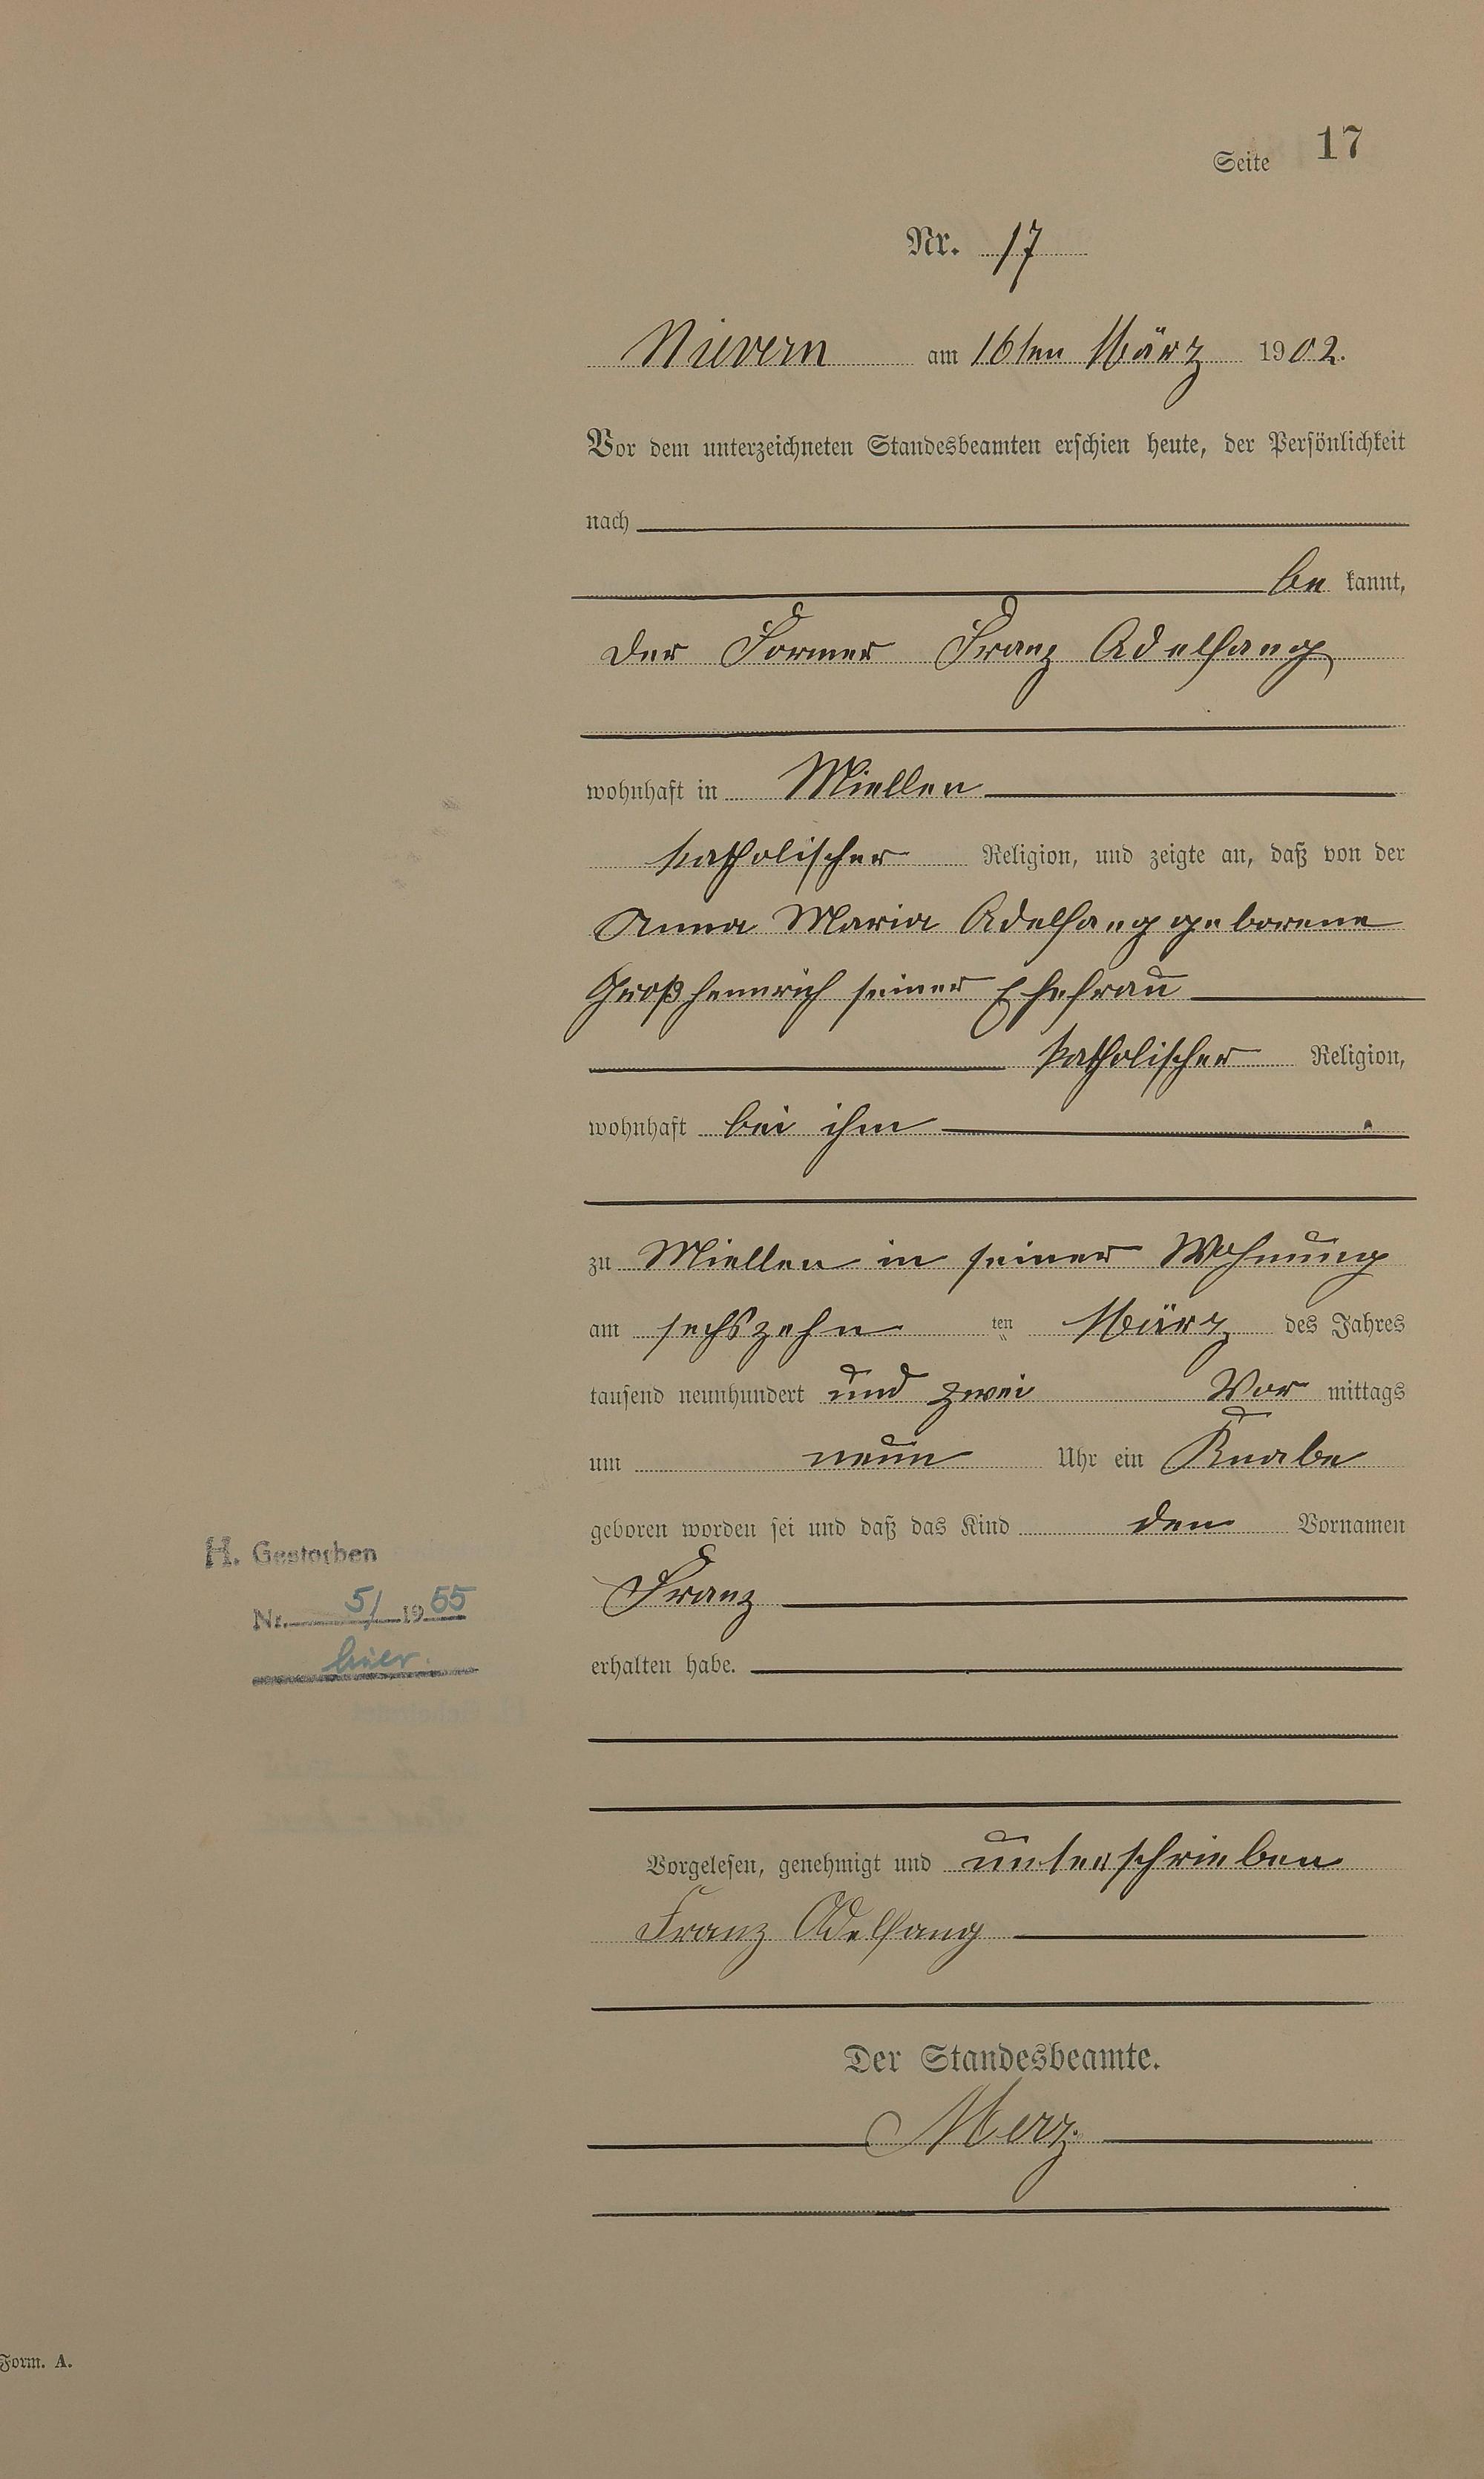 Seite 17
Nr. 17
Nievern am 16ten März 1902.
Vor dem unterzeichneten Standesbeamten erschien heute, der Persönlichkeit
nach
be kannt,
der Former Franz Adelfang
wohnhaft in Miellen
katholischer Religion, und zeigte an, daß von der
Anna Maria Adelfang geborene
Großhennrich seiner Ehefrau
katholischer Religion,
wohnhaft bei ihm
zu Miellen in seiner Wohnung
am sechszehn ten März des Jahres
tausend neunhundert und zwei Vor mittags
um neun Uhr ein Knabe
geboren worden sei und daß das Kind den Vornamen
Franz
erhalten habe.
Vorgelesen, genehmigt und unterschrieben
Franz Adelfang
Der Standesbeamte.
Merz.
H. Gestorben
Nr. 5/ 1955
hier.
Form. A.